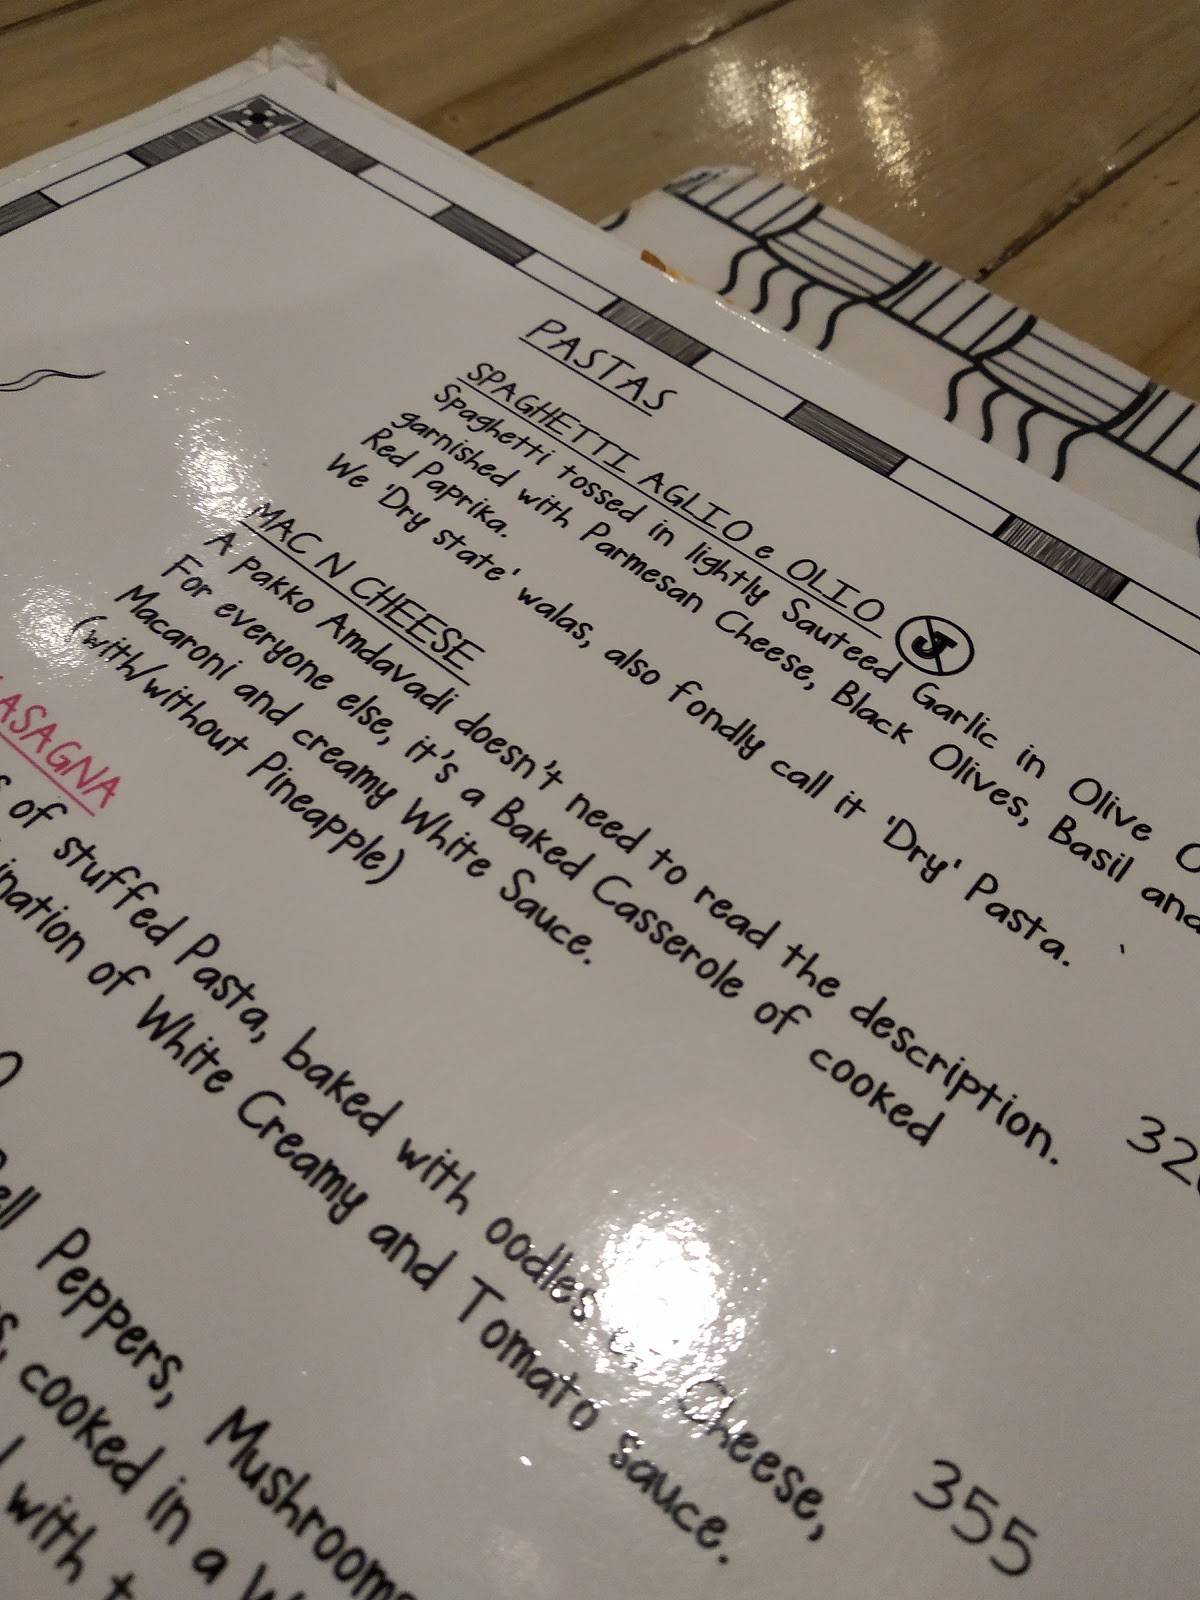 PASTAS
SPAGHETTI AGLIO e OLIO J
Spaghetti tossed in lightly Sauteed Garlic in Olive
garnished with Parmesan Cheese, Black Olives, Basil and
Red Paprika.
We 'Dry state' walas, also fondly call it 'Dry' Pasta.
MAC N CHEESE
A pakko Amdavadi doesn't need to read the description.
For everyone else, it's a Baked Casserole of cooked
Macaroni and creamy White Sauce.
(with/without Pineapple)
32
ASAGNA
of stuffed Pasta, baked with oodles Cheese,
ination of White Creamy and Tomato sauce.
355
ell Peppers, Mushrooms
cooked in a
with